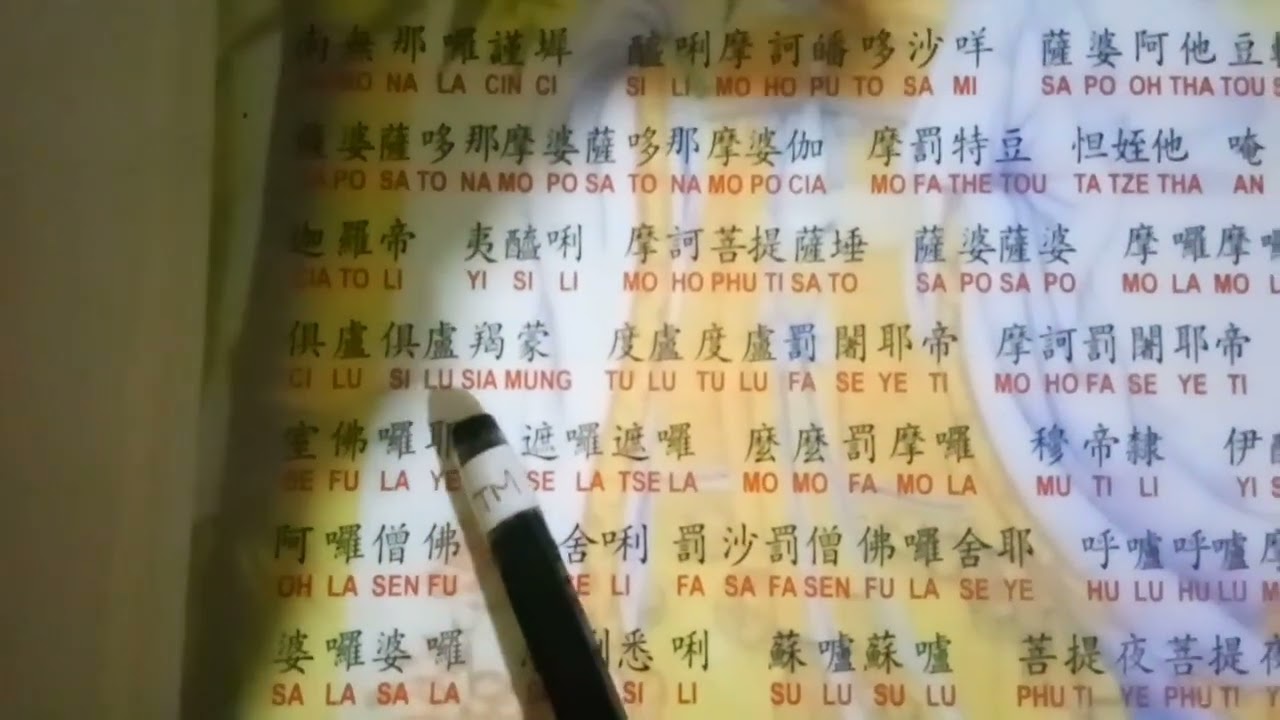 南無那囉謹墀 醯唎摩訶皤哆沙咩 薩婆阿他豆
MO NA LA CIN CI SI LI MO HO PU TO SA MI SA PO OH THA TOU
婆薩哆那摩婆薩哆那摩婆伽 摩罰特豆 怛姪他 唵
PO SA TO NA MO PO SA TO NA MO PO CIA MO FA THE TOU TA TZE THA AN
迦羅帝 夷醯唎 摩訶菩提薩埵 薩婆薩婆 摩囉摩
CIA TO LI YI SI LI MO HO PHU TI SA TO SA PO SA PO MO LA MO
俱盧俱盧羯蒙 度盧度盧罰闍耶帝 摩訶罰闍耶帝
CI LU SI LU SIA MUNG TU LU TU LU FA SE YE TI MO HO FA SE YE TI
室佛囉耶 遮囉遮囉 麼麼罰摩囉 穆帝隸 伊
FU LA YE SE LA TSE LA MO MO FA MO LA MU TI LI YI
TM
阿囉僧佛 舍唎 罰沙罰僧佛囉舍耶 呼嚧呼嚧
OH LA SEN FU LI FA SA FA SEN FU LA SE YE HU LU HU LU
婆囉婆囉 悉唎 蘇嚧蘇嚧 菩提夜菩提
SA LA SA LA SI LI SU LU SU LU PHU TI YE PHU TI